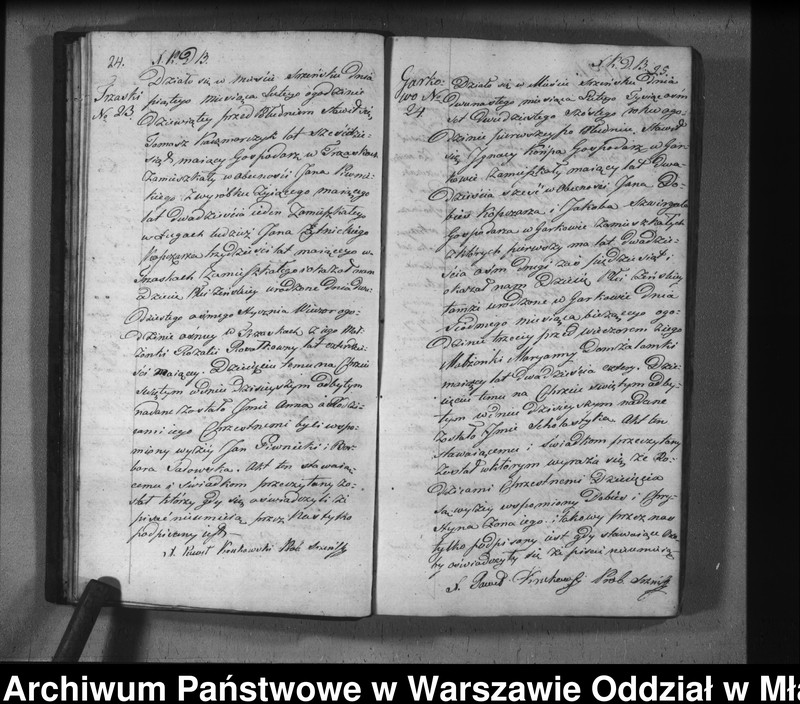 24.
Trzaski
No 23
Działo się w Mieście Szreńsku dnia
piątego Miesiąca Lutego o godzinie
Dziewiątey przed Południem Stawił się
Tomasz Kaczmarczyk lat
maiący Gospodarz w Trzaskach
Zamieszkały w obecności Jana Piwni-
ckiego z wyrobku żyjącego maiącego
lat dwadzieścia ieden Zamieszkałego
w Ługach tudzież Jana
Kopczarza trzydzieści lat maiącego w
Trzaskach Zamieszkałego okazał nam
dziecię Płci Żeńskiej urodzone Dnia dwu-
dziestego osmego Stycznia Wieczor o go-
dzinie osmey w Trzaskach z iego Mał-
żonki Rozalii lat czterdzie-
ści maiącey. Dziecięciu temu na Chrzcie
Świętym w dniu dzisieyszym odbytym
nadane zostało Imie Anna a Rodzi-
cami iego Chrzestnemi byli wspo-
mniony wyżey Jan Piwnicki i Bar-
bara Sadowska. Akt ten stawaią-
cemu i Świadkom przeczytany zo-
stał którzy gdy się oświadczyli iż
pisać nieumieią przez Nas tylko
podpisany iest.
X. Paweł Prob. Szreński
25.
Garko-
wo No
24
Działo się w Mieście Szreńsku dnia
Dwunastego miesiąca Lutego Tysiąc osm-
set Dwudziestego Szostego roku o go-
dzinie pierwszey po Południu, Stawił
się Ignacy Kośpa Gospodarz w Gar-
kowie Zamieszkały maiący lat Dwa-
dzieścia sześć w obecności Jana Do-
bies Kopczarza i Jakoba
Gospodarza w Garkowie Zamieszkałych
z których pierwszy ma lat dwadzie-
ścia osm drugi zaś i
okazał nam Dziecię Płci Żeńskiej
tamże urodzone w Garkowie Dnia
Siodmego miesiąca bieżącego o go-
dzinie trzeciey przed wieczorem z iego
Małżonki Maryanny
maiącey lat Dwadzieścia cztery. Dzie-
cięciu temu na Chrzcie świętym odby-
tym w dniu Dzisieyszym nadane
zostało Imie Scholastyka. Akt ten
stawaiącemu i świadkom przeczytany
został w którym wyraża się że Ro-
dzicami Chrzestnemi Dziecięcia
są wyżey wspomniony Dobies i Kry-
styna żona iego i takowy przez nas
tylko podpisany iest gdy stawaiące oso-
by oświadczyły się że pisać nieumieią
X. Paweł Prob. Szreński
Archiwum Państwowe w Warszawie Oddział w Mła